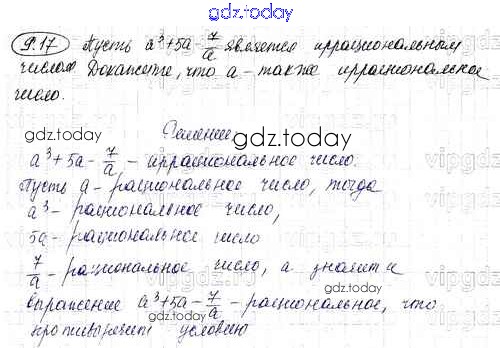 gdz.today
9.17 Пусть a³+5a-7/a является иррациональным
числом Докажите, что a - также иррациональное
число.
gdz.today
Решение
gdz.today
a³+5a-7/a - иррациональное число.
Пусть a - рациональное число, тогда
a³ - рациональное число,
5a - рациональное число
7/a - рациональное число, а значит и
выражение a³+5a-7/a - рациональное, что
противоречит условию
gdz.today
gdz.today
gdz.today